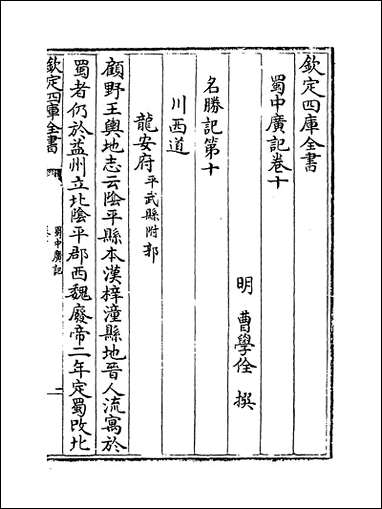 欽定四庫全書
蜀中廣記卷十
明 曹學佺 撰
名勝記第十
川西道
龍安府平武縣附郭
顧野王輿地志云陰平縣本漢梓潼縣地晉人流寓於
蜀者仍於益州立北陰平郡西魏廢帝二年定蜀改北
欽定四庫全書
蜀中廣記
一